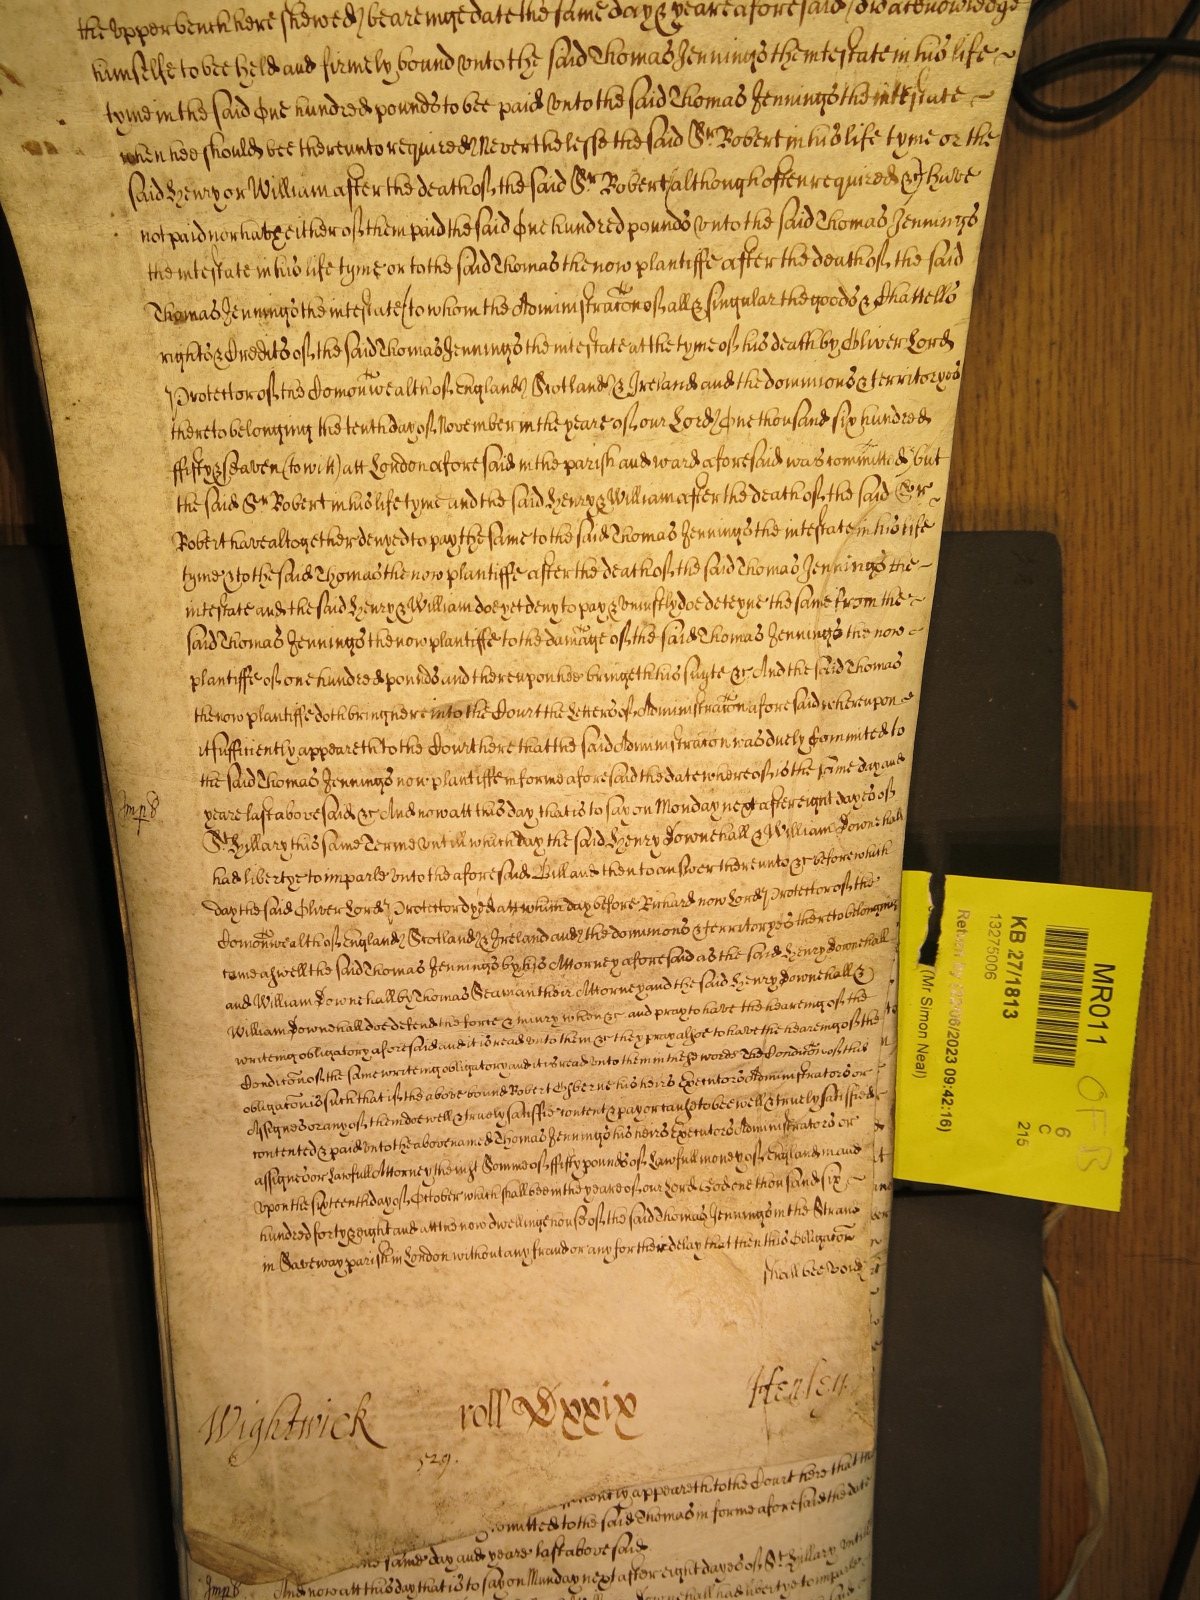 the upper bench here shewed beareinge date the same day & yeare aforesaid did acknowledge
himselfe to bee held and firmely bound unto the said Thomas Jennings the intestate in his life
tyme in the said One hundred pounds to bee paid unto the said Thomas Jennings the intestate
when hee should bee thereunto required Neverthelesse the said Sr Robert in his life tyme or the
said Henry or William after the death of the said Sr Robert (although often required &c) have
not paid nor hath either of them paid the said One hundred pounds unto the said Thomas Jennings
the intestate in his life tyme or to the said Thomas the now plantiffe after the death of the said
Thomas Jennings the intestate (to whom the Administracon of all & singular the goods & Chattells
rights & Credits of the said Thomas Jennings the intestate at the tyme of his death by Oliver Lord
Protector of the Comonwealth of England Scotland & Ireland and the dominions & territoryes
thereto belonging the tenth day of November in the yeare of our Lord One thousand six hundred
fifty & seaven (to witt) att London aforesaid in the parish and ward aforesaid was committed) but
the said Sr Robert in his life tyme and the said Henry & William after the death of the said Sr
Robert have altogether denyed to pay the same to the said Thomas Jennings the intestate in his life
tyme & to the said Thomas the now plantiffe after the death of the said Thomas Jennings the
intestate and the said Henry & William doe yet deny to pay & uniustly doe deteyne the same from the
said Thomas Jennings the now plantiffe to the damage of the said Thomas Jennings the now
plantiffe of one hundred pounds and thereupon hee bringeth his suyte &c And the said Thomas
the now plantiffe doth bring here into the Court the Letters of Administracon aforesaid whereupon
it sufficiently appeareth to the Court here that the said Administracon was duely Committed to
the said Thomas Jennings now plantiffe in forme aforesaid the date whereof is the same day and
Imp
yeare last above said &c And now att this day that is to say on Monday next after eight dayes of
St Hillary this same Terme untill which day the said Henry Downehall & William Downehall
had libertye to imparle unto the aforesaid Bill and then to answer thereunto &c before which
day the said Oliver Lord Protector dyed att whim day before Richard now Lord Protector of the
Comonwealth of England Scotland & Ireland and the dominions & territoryes thereto belonging
came aswell the said Thomas Jennings by his Attorney aforesaid as the said Henry Downehall
and William Downehall by Thomas Seaman their Attorney and the said Henry Downehall &
William Downehall doe defend the force & iniury when &c and pray to have the heareing of the
writeing obligatory aforesaid and it is read unto them &c they pray alsoe to have the heareing of the
Condicon of the same writeing obligatory and it is read unto them in these words The Condicon of this
obligacon is such that if the above bound Robert his heirs Executors Administrators or
Assignes or any of them doe well & truely satisfie content & pay or cause to bee well & truely satisfied
contented & paid unto the above named Thomas Jennings his heirs Executors Administrators or
assignes or Lawfull Attorney the iust Somme of fifty pounds of Lawfull money of England in and
upon the sixteenth day of October which shall bee in the yeare of our Lord God one thousand six
hundred forty & eight and att the now dwelling house of the said Thomas Jennings in the Strand
in Saveway parish in London without any fraud or any forther delay that then this Obligacon
shall bee voyd
Wightwick roll Dxxix Henley
529.
appeareth to the Court here that
omitted to the said Thomas in forme aforesaid the date
same day and yeare last above said
Imp
And now att this day that is to say on Munday next after eight dayes of St Hillary untill
Downehall had libertye to imparle
MR011
KB 27/1813
13275006
Return by 06/2023 09:42:16)
(Mr Simon Neal)
6
C
215
OFB